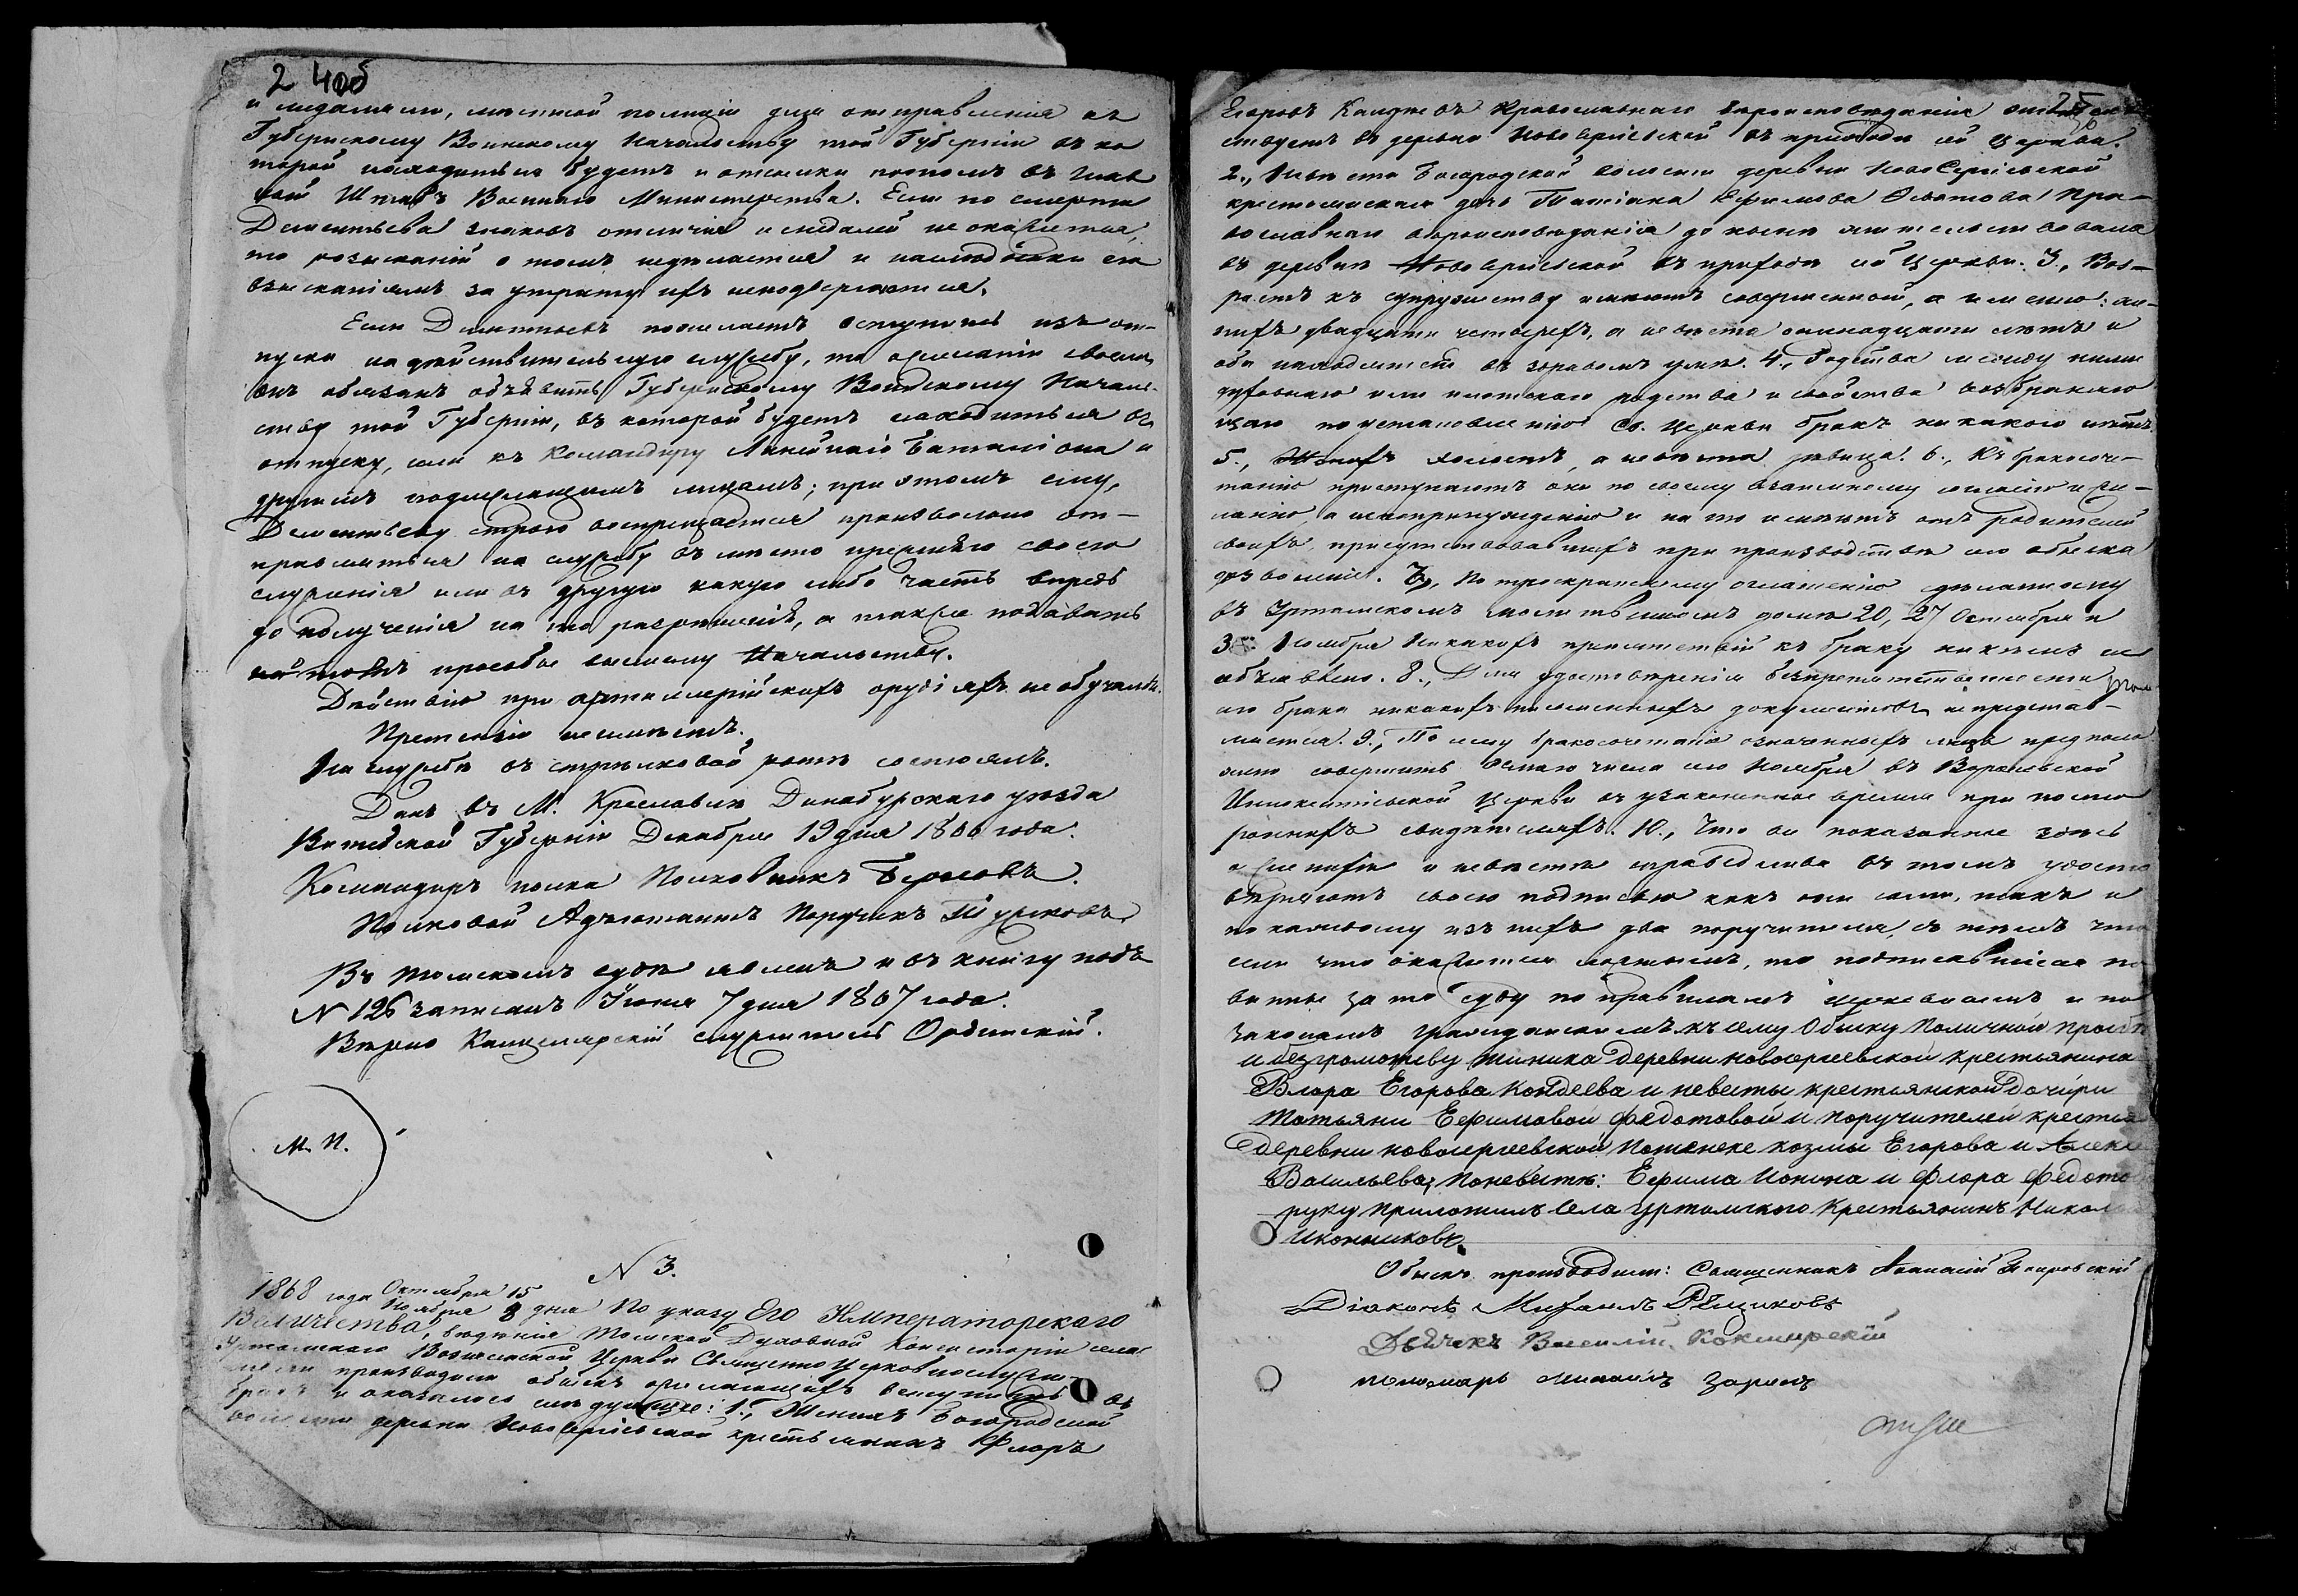 24об
и медалями, местной полиціи для отправленія къ
Губернскому Воинскому Начальству той Губерніи въ ко
торой находиться будетъ и отсылки потомъ въ Глав
ный Штабъ Военнаго Министерства. Если по смерти
Дементьева знаковъ отличія и медалей не окажется,
то розысканій о томъ недѣлается и наследники его
взысканіямъ за утрату ихъ неподвергаются.
Если Дементьевъ пожелаетъ вступить изъ от-
пуска на дѣйствительную службу, то о желаніи своемъ
онъ обязанъ объявить Губернскому Воинскому Началь-
ству той Губерніи, въ которой будетъ находиться въ
отпуску, или къ Командиру Линейнаго Баталіона и
другимъ подлежащимъ лицамъ; при этомъ ему,
Дементьеву строго воспрещается произвольно от-
правляться на службу въ место прежняго своего
служенія или въ другую какую либо часть впредь
до полученія на то разрѣшенія, а также подавать
о томъ просьбы высшему Начальству.
Дѣйствію при артиллерійскихъ орудіяхъ не обучался.
Претензіи неимѣетъ.
На службѣ въ стрѣлковой ротѣ состоялъ.
Данъ въ М. Креславлѣ Динабургскаго уѣзда
Витебской Губерніи Декабря 19 дня 1866 года.
Командиръ полка Полковникъ
Полковой Адъютантъ Поручикъ
Въ Томскомъ судѣ явленъ и въ книгу подъ
N 126 записанъ Іюня 7 дня 1867 года.
Вѣрно Канцелярскій служитель Ординскій.
М. П.
N 3.
1868 года Октября 15
Ноября 8 дня По указу Его Императорскаго
Величества, вѣдѣнія Томской Духовной Консисторіи села
Уртамскаго Вознесенской Церкви Священно Церковнослужи-
тели производили обыскъ о желающихъ вступить въ
бракъ и оказалось следующее: 1., Женихъ Богородской
волости деревни Новосергіевской крестьянинъ Флоръ
25
Егоровъ Православнаго вероисповеданія
ствуетъ въ деревнѣ Новосергіевской въ приходѣ сей церкви.
2., Невѣста Богородской волости деревни НовоСергіевской
крестьянская дочь Татіана Ефимова Ѳедотова Пра-
вославнаго вероисповеданія до нынѣ жительствовала
въ деревнѣ Новосергіевской въ приходѣ сей Церкви. 3., Воз-
растъ къ супружеству имѣютъ совершенной, а именно: же-
нихъ двадцати четырехъ, а невѣста осмнадцати лѣтъ и
оба находятся въ здравомъ умѣ. 4., Родства между ними
духовнаго или плотскаго родства и свойства возбраняю
щаго по установленію Св. Церкви бракъ никакого нѣтъ.
5., Женихъ холостъ, а невѣста девица. 6., Къ бракосоче-
танію приступаютъ они по своему взаимному согласію и же-
ланію, а не по принужденію и на то имѣютъ отъ родителей
своихъ, присутствовавшихъ при производствѣ сего обыска
дозволеніе. 7., По троекратному оглашенію сделанному
въ Уртамскомъ молитвенномъ домѣ 20, 27 Октября и
3 Ноября никакихъ препятствій къ браку никемъ не
объявлено. 8., Для удостовѣренія безпрепятственности
сего брака никакихъ письменныхъ документовъ не представ-
ляется. 9., По сему бракосочетаніе означенныхъ лицъ предполо
жено совершить осмаго числа сего Ноября въ
Иннокентіевской Церкви въ узаконенное время при посто
роннихъ свидѣтеляхъ. 10., Что все показанное здѣсь
о женихѣ и невѣстѣ справедливо въ томъ удосто
вѣряютъ своею подписью какъ они сами, такъ и
по каждому изъ нихъ два поручителя, съ темъ что
если что окажется ложнымъ, то подписавшіеся по
винны за то суду по правиламъ церковнымъ и по
законамъ гражданскимъ. къ сему Обыску Поличной прозьбѣ
и безграмотству жениха Деревни новосергеевской крестьянина
Влора Егорова Кондеева и невесты крестьянской Дочери
Татьяни Ефимовой Федотовой и поручителей крестья
Деревни новосергеевской Поженехе козмы Егорова и Алекс
Васильева, Поневесте: Ефима Ионина и Флора Федото
руку приложилъ села уртамского Крестьянинъ Никол
Иконниковъ.
Обыскъ производили: Священникъ Афанасій
Діаконъ Михаилъ
Дьячекъ Василій
пономарь